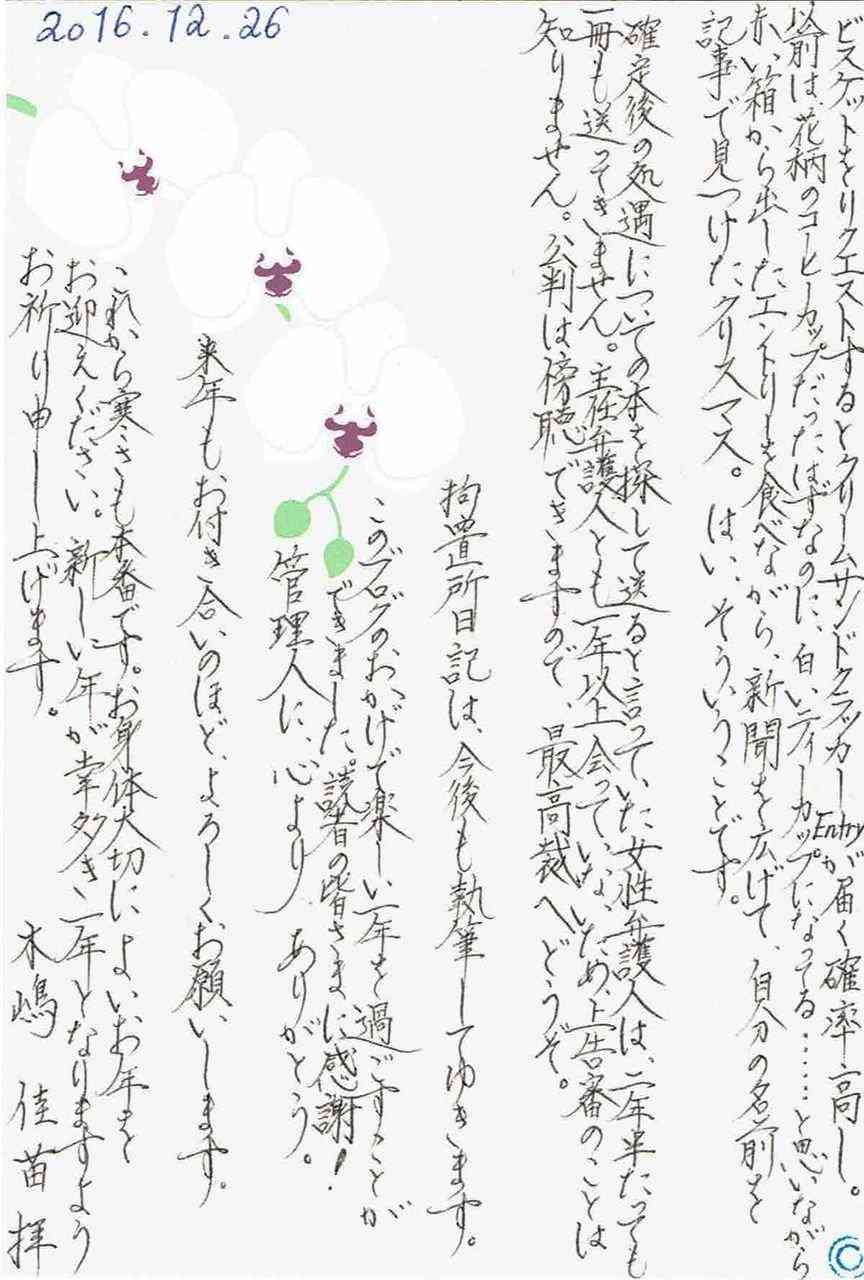 2016.12.26
ビスケットをリクエストするとクリームサンドクラッカーEntryが届く確率高し。
以前は花柄のコーヒーカップだったはずなのに、白いティーカップになってる……と思いながら
赤い箱から出したエントリーを食べながら、新聞を広げて、自分の名前を
記事で見つけたクリスマス。はい、そういうことです。
確定後の処遇についての本を探して送ると言っていた女性弁護人は、二年半たっても
一冊も送ってきません。主任弁護人とも一年以上会っていないため、上告審のことは
知りません。公判は傍聴できますので、最高裁へどうぞ。
拘置所日記は、今後も執筆してゆきます。
このブログのおかげで楽しい一年を過ごすことが
できました。読者の皆さまに感謝！
管理人に、心より、ありがとう。
来年もお付き合いのほど、よろしくお願いします。
これから寒さも本番です。お身体大切に、よいお年を
お迎えください。新しい年が幸多き一年となりますよう
お祈り申し上げます。
木嶋 佳苗 拝
©